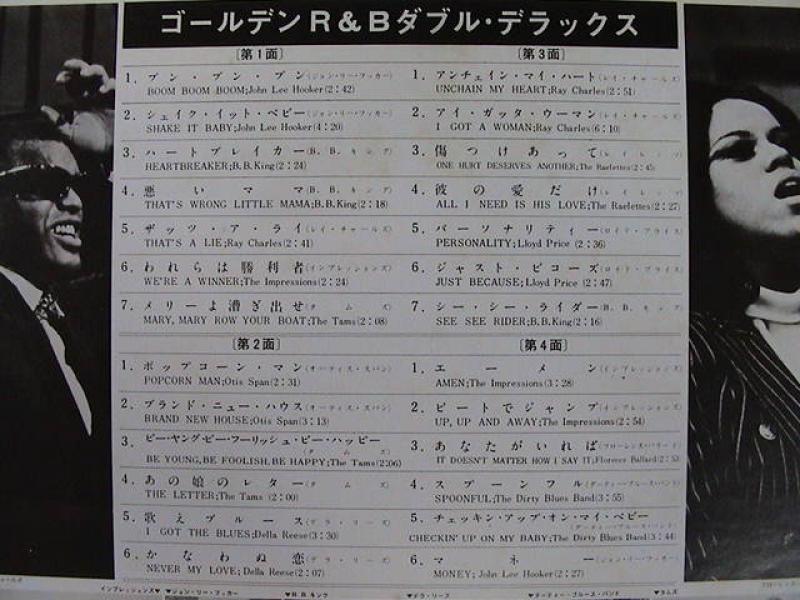 ゴールデンR&Bダブル・デラックス
〔第1面〕
1. ブン・ブン・ブン(ジョン・リー・フッカー)
BOOM BOOM BOOM;John Lee Hooker(2:42)
2. シェイク・イット・ベビー(ジョン・リー・フッカー)
SHAKE IT BABY;John Lee Hooker(4:20)
3. ハートブレイカー(B.B.キング)
HEARTBREAKER;B.B.King(2:24)
4. 悪いママ(B.B.キング)
THAT'S WRONG LITTLE MAMA;B.B.King(2:18)
5. ザッツ・ア・ライ(レイ・チャールズ)
THAT'S A LIE;Ray Charles(2:41)
6. われらは勝利者(インプレッションズ)
WE'RE A WINNER;The Impressions(2:24)
7. メリーよ漕ぎ出せ(タムズ)
MARY, MARY ROW YOUR BOAT;The Tams(2:08)
〔第2面〕
1. ポップコーン・マン(オーティス・スパン)
POPCORN MAN;Otis Span(2:31)
2. ブランド・ニュー・ハウス(オーティス・スパン)
BRAND NEW HOUSE;Otis Span(3:13)
3. ビー・ヤング・ビー・フーリッシュ・ビー・ハッピー
(タムズ)
BE YOUNG, BE FOOLISH, BE HAPPY;The Tams(2:06)
4. あの娘のレター(タムズ)
THE LETTER;The Tams (2:00)
5. 歌えブルース(デラ・リーズ)
I GOT THE BLUES;Della Reese(3:30)
6. かなわぬ恋(デラ・リーズ)
NEVER MY LOVE;Della Reese(2:07)
〔第3面〕
1. アンチェイン・マイ・ハート(レイ・チャールズ)
UNCHAIN MY HEART;Ray Charles(2:51)
2. アイ・ガッタ・ウーマン(レイ・チャールズ)
I GOT A WOMAN;Ray Charles(6:10)
3. 傷つけあって(レイレッツ)
ONE HURT DESERVES ANOTHER;The Raelettes(2:45)
4. 彼の愛だけ(レイレッツ)
ALL I NEED IS HIS LOVE;The Raelettes(2:27)
5. パーソナリティー(ロイド・プライス)
PERSONALITY;Lloyd Price (2:36)
6. ジャスト・ビコーズ(ロイド・プライス)
JUST BECAUSE;Lloyd Price (2:47)
7. シー・シー・ライダー(B.B.キング)
SEE SEE RIDER;B.B.King(2:16)
〔第4面〕
1. エーメン(インプレッションズ)
AMEN;The Impressions(3:28)
2. ビートでジャンプ(インプレッションズ)
UP, UP AND AWAY;The Impressions(2:54)
3. あなたがいれば(フローレンス・バラード)
IT DOESN'T MATTER HOW I SAY IT;Florence Ballard(2:53)
4. スプーンフル(ダーティー・ブルース・バンド)
SPOONFUL;The Dirty Blues Band(3:55)
5. チェッキン・アップ・オン・マイ・ベビー
(ダーティー・ブルース・バンド)
CHECKIN' UP ON MY BABY;The Dirty Blues Band(3:44)
6. マネー(ジョン・リー・フッカー)
MONEY; John Lee Hooker(2:27)
インプレッションズ▼ ▼ジョン・リー・フッカー ▼B.B.キング ▼デラ・リーズ ▼ダーティー・ブルース・バンド ▼タムズ